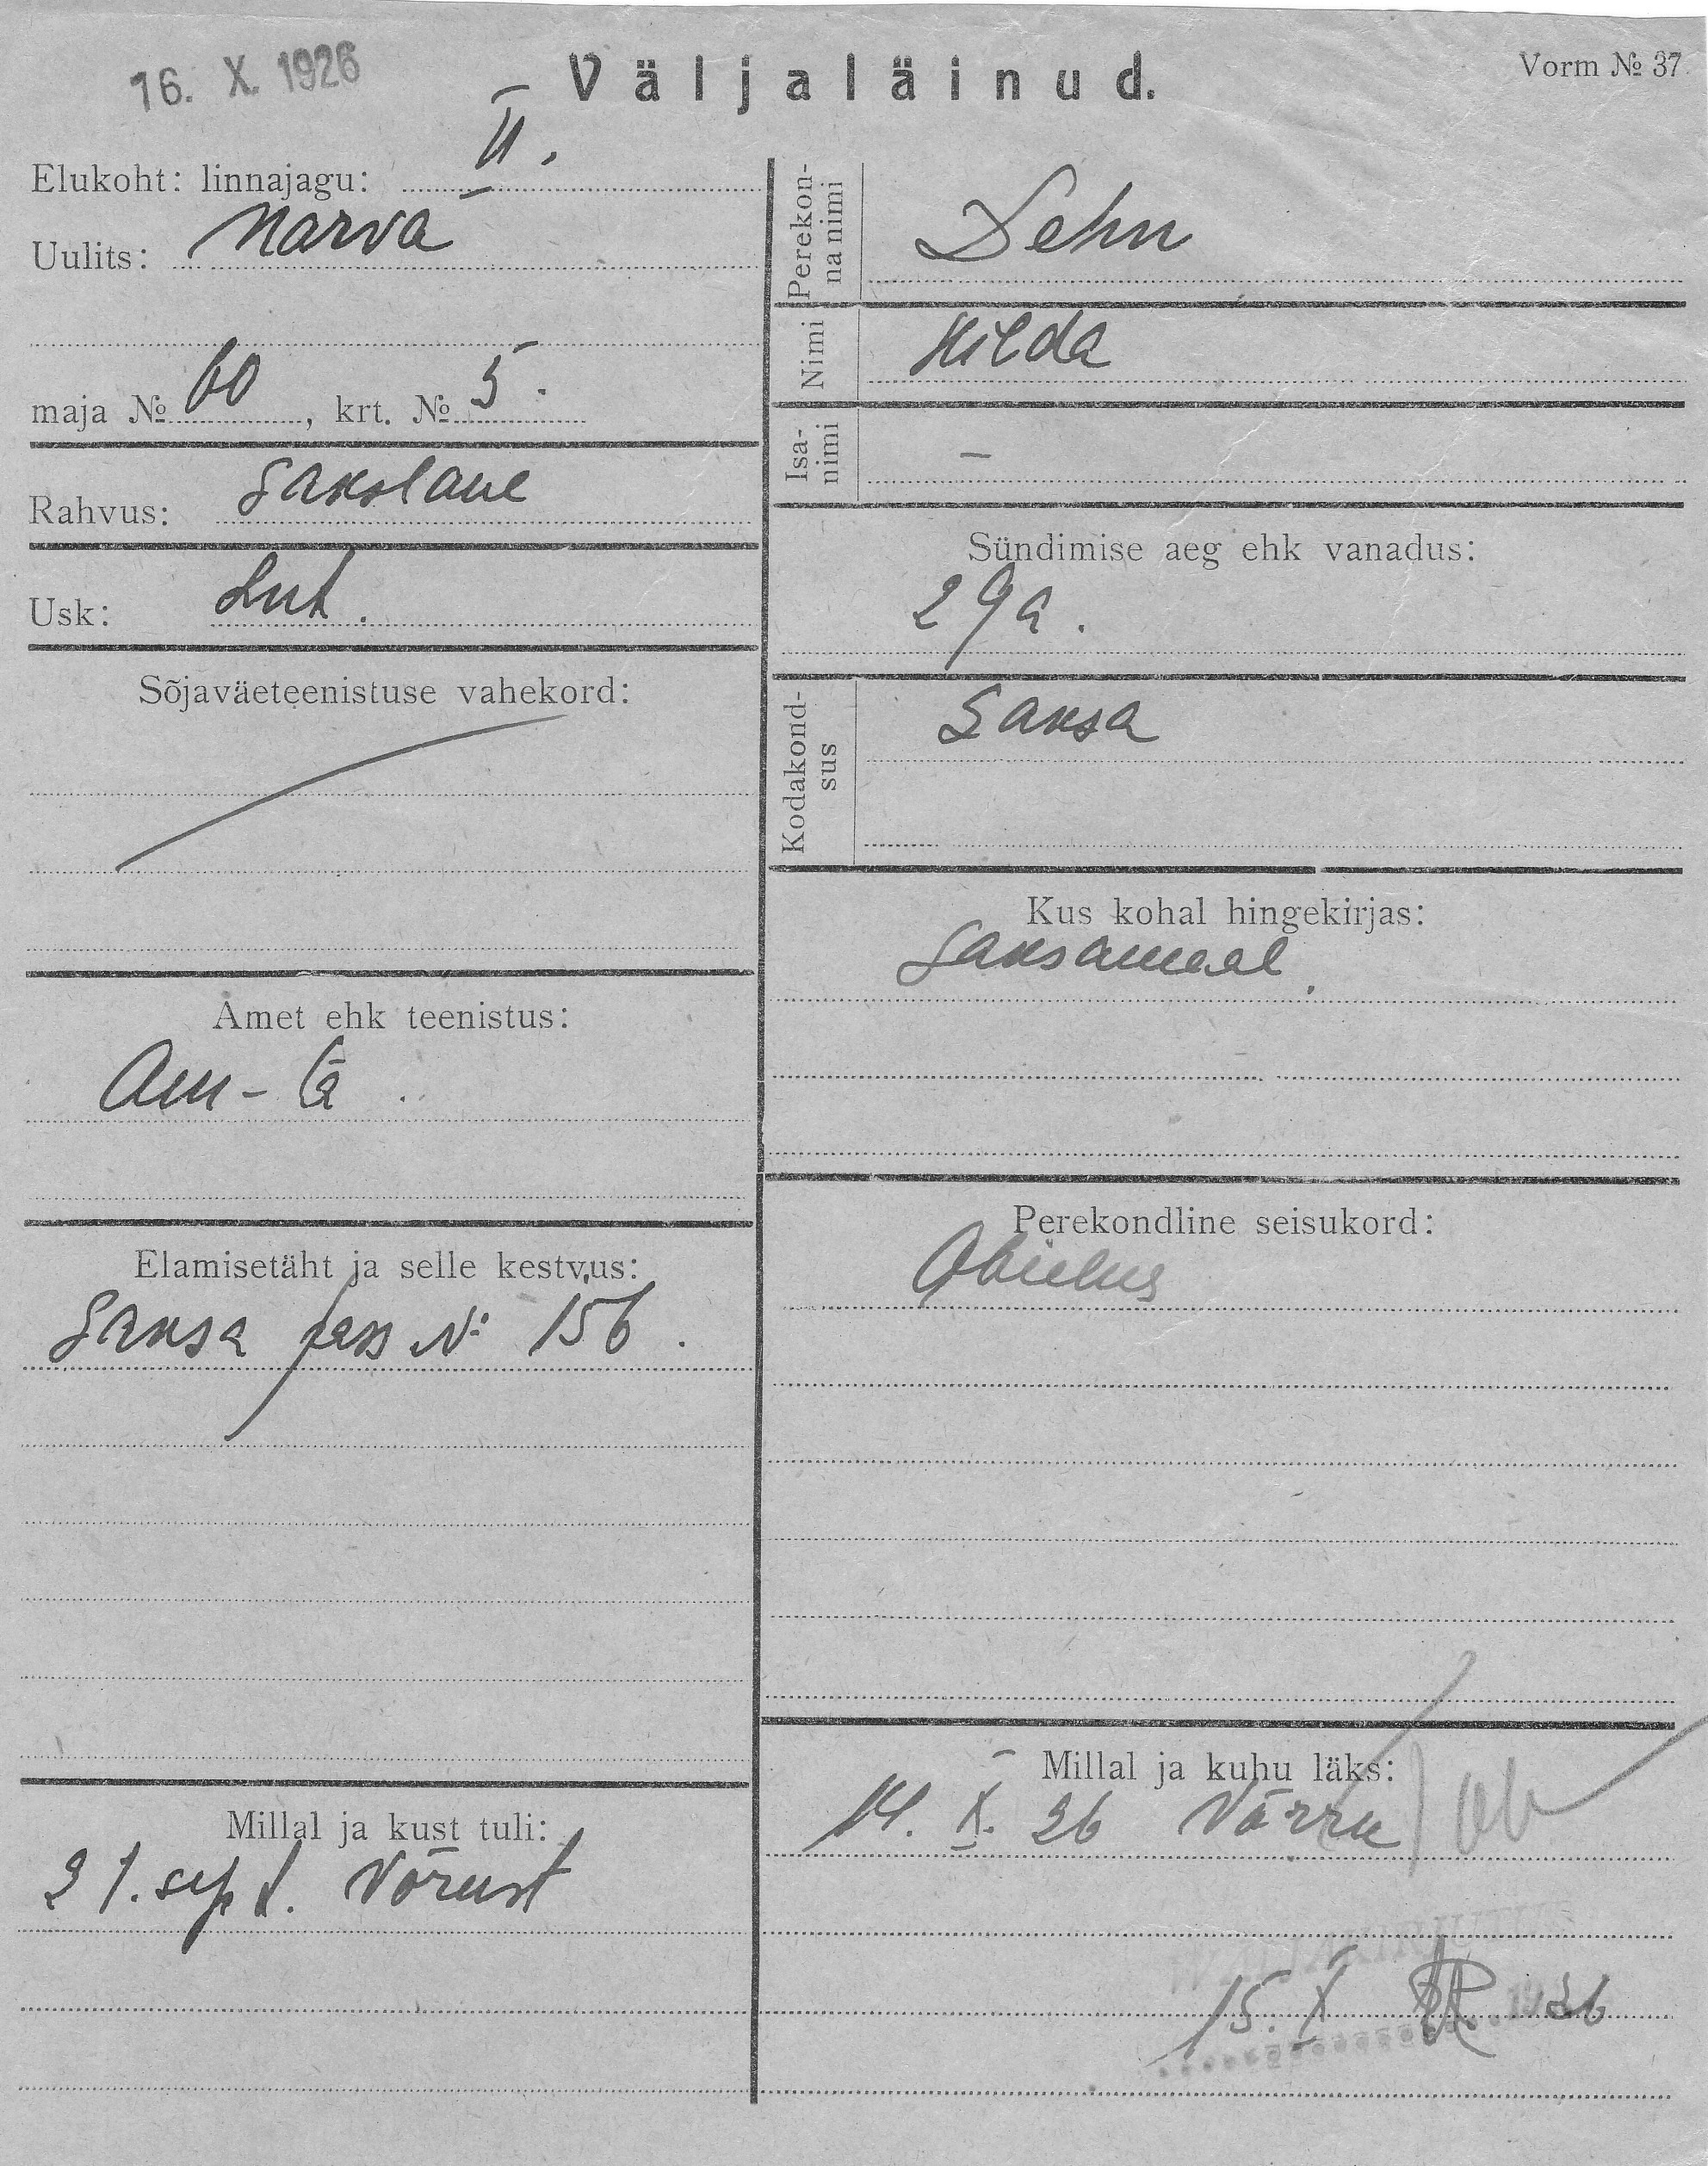 16. X. 1926
Väljaläinud.
Vorm № 37
Elukoht: linnajagu: II.
Uulits: Narva
maja № 60, krt. № 5.
Rahvus: Sakslane
Usk: Lut.
Sõjaväeteenistuse vahekord:
Amet ehk teenistus:
Elamisetäht ja selle kestvus:
Saksa pass № 156.
Millal ja kust tuli:
21. sept. Võrust
Perekon-
na nimi
Dehn
Nimi Hilda
Isa-
nimi
–
Sündimise aeg ehk vanadus:
29 a.
Kodakond-
sus
Saksa
Kus kohal hingekirjas:
Saksamaal.
Perekondline seisukord:
Abielus
Millal ja kuhu läks:
14. X. 26 Võrru
15. X 1926